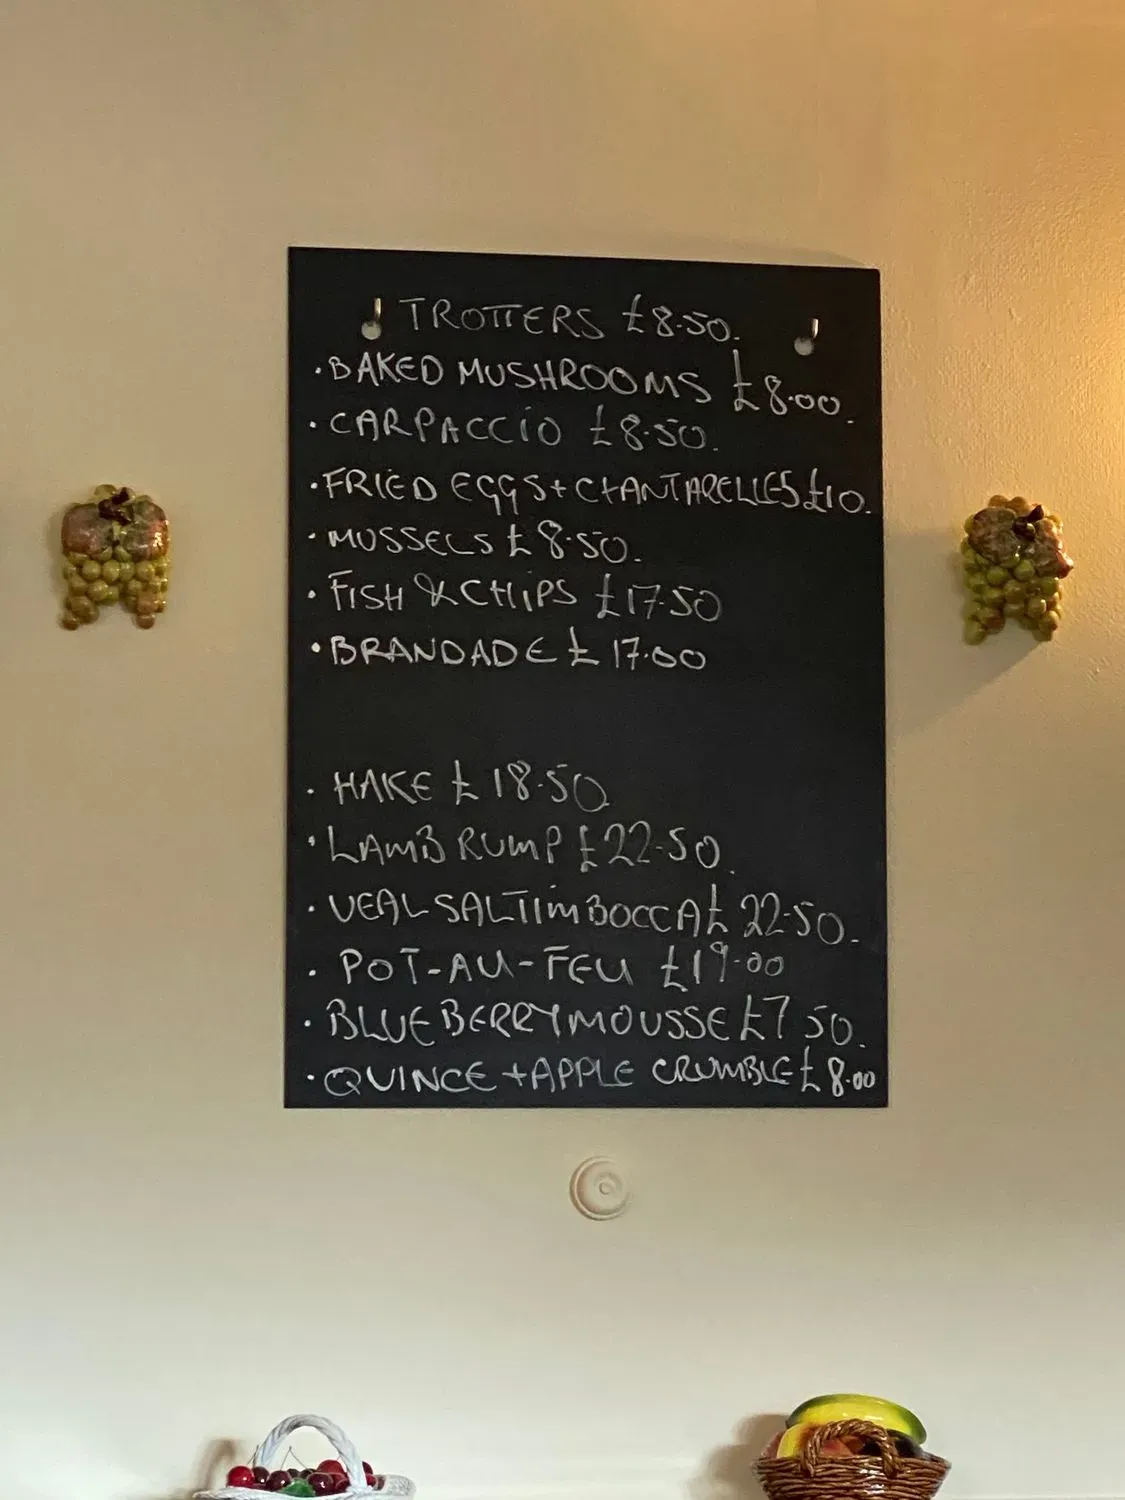 TROTTERS £8.50.
·BAKED MUSHROOMS £8.00.
·CARPACCIO £8.50.
·FRIED EGGS+CHANTARELLES £10.
·MUSSELS £8.50.
·FISH & CHIPS £17.50
·BRANDADE £17.00
·HAKE £18.50
·LAMB RUMP £22.50.
·VEAL SALTIIMBOCCA £22.50.
·POT-AU-FEU £19.00
·BLUEBERRY MOUSSE £7 50.
·QUINCE +APPLE CRUMBLE £8.00